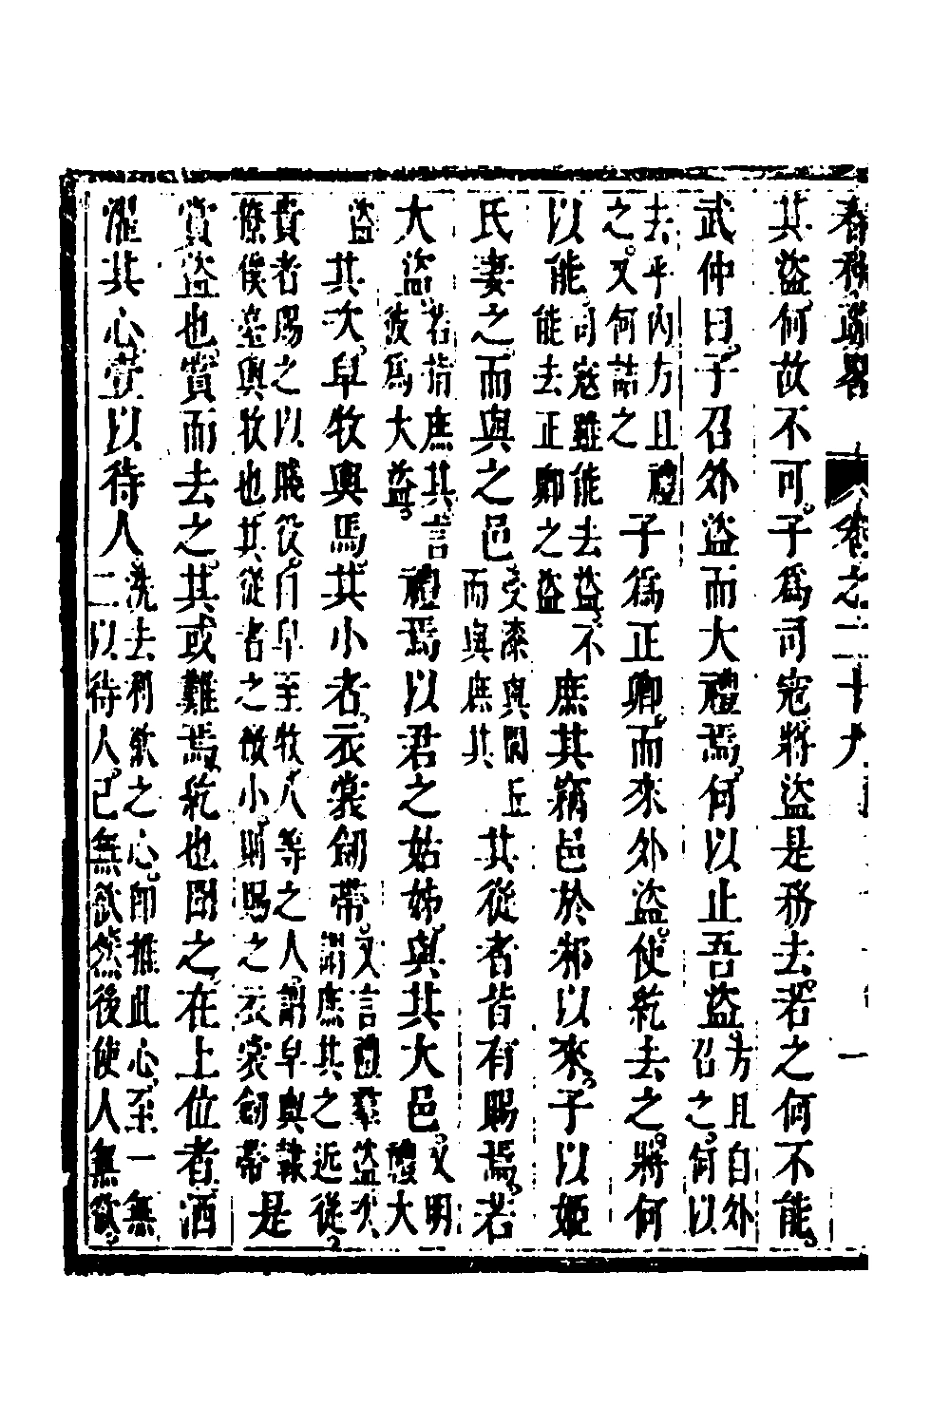 春秋畧 卷之二十九 一
其盜何故不可子為司寇將盜是務去若之何不能
武仲曰子召外盜而大禮焉何以止吾盜方且自外召之何以
去乎內方且禮之又何詰之子為正卿而來外盜使紇去之將何
以能司寇雖能去盜不能去正卿之盜庶其竊邑於邾以來子以姬
氏妻之而與之邑受漆與閭丘而與庶其其從者皆有賜焉若
大盜若指庶其言彼為大盜禮焉以君之姑姊與其大邑又明禮大
盜其次皁牧輿馬其小者衣裳劒帶又言禮羣盜次謂庶其之近從
貴者賜之以賤役自皁至牧八等之人謂皁輿隸僚僕臺輿牧也其從者之微小則賜之衣裳劒帶是
賞盜也賞而去之其或難焉紇也聞之在上位者洒
濯其心壹以待人洗去利欲之心即推此心至一無二以待人己無欲然後使人無欲